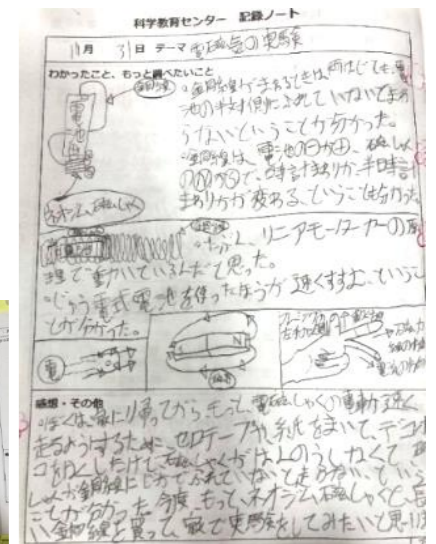 科学教育センター 記録ノート
11月 31日 テーマ 電磁気の実験
わかったこと、もっと調べたいこと
銅線
電池
ネオジム磁しゃく
・銅線がまわるときは、両はじでも電
池の対側にふれていないとまわ
らないということが分かった。
・銅線は、電池の⊖か⊕、磁しゃく
のNかSで、時計まわりか、半時計
まわりかが変わる、ということも分かった
・たぶん、リニアモーターカーの原
理で動いているんだと思った。
・じゅう電式電池を使ったほうが速くすすむ、というこ
とが分かった。
電
N
フレミングの
左手の
感想・その他
・ぼくは、家に帰ってから、もっと、電磁しゃくの電動が速く
走るようするために、セロテープや、紙をまいて、デコボ
コをなくしたけど、磁しゃくがはんのうしなくて、磁
しゃくが銅線にじかでふれていないと走らない、という
ことが分かった。今度、もっと、ネオジム磁しゃくと、長
い銅線を買って、家で実験をしてみたいと思います